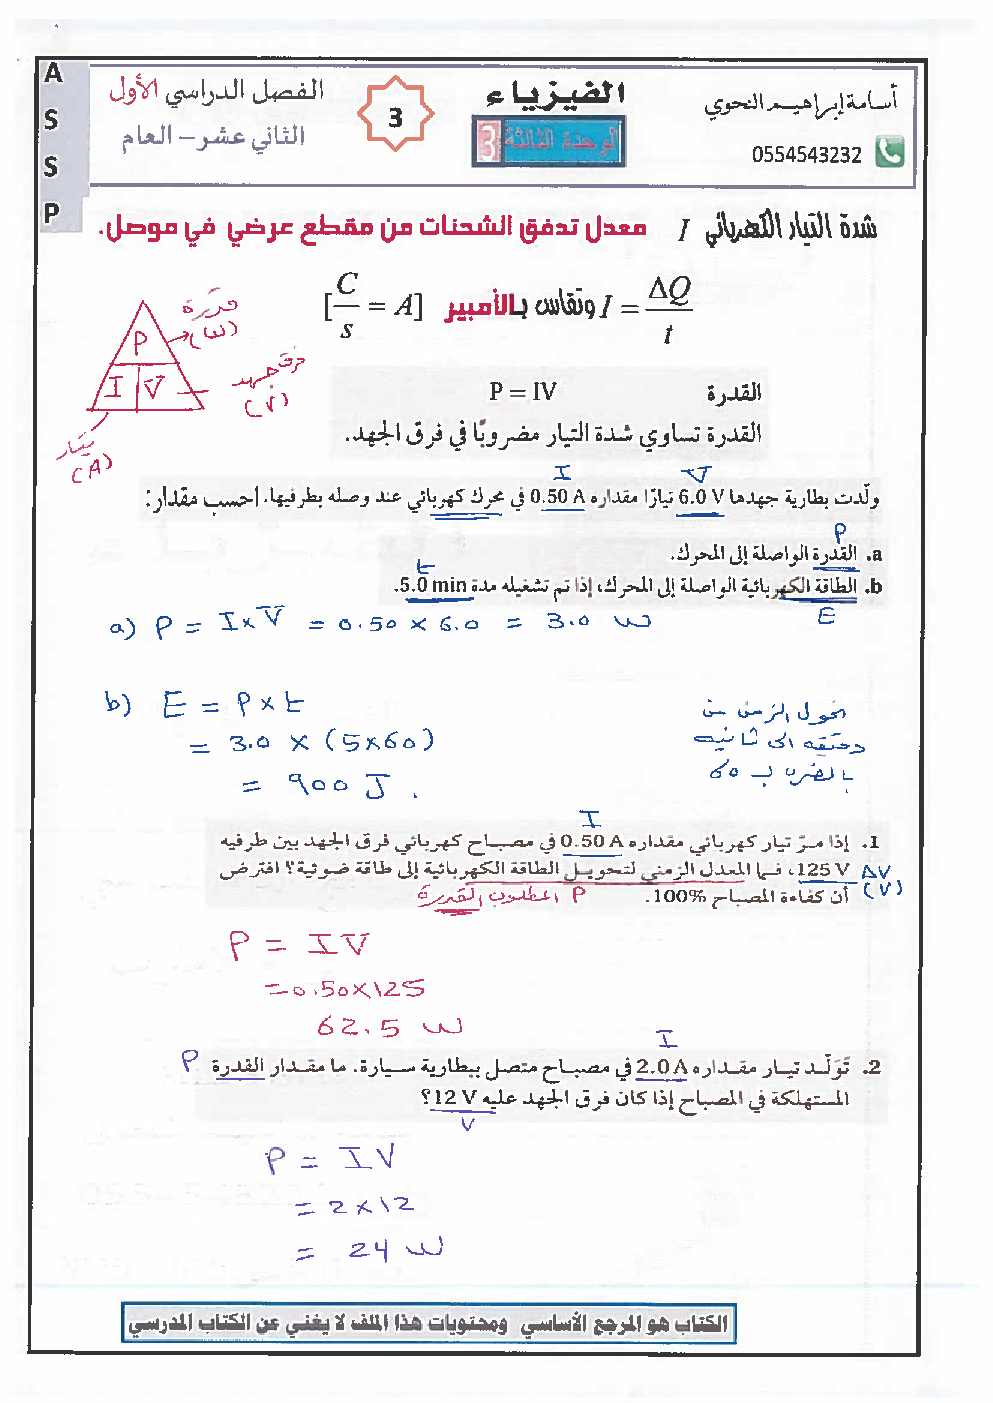 A
S
S
P
أسامة إبراهيم النحوي
0554543232
الفيزياء
الوحدة الثالثة 3
3
الفصل الدراسي الأول
الثاني عشر – العام
شدة التيار الكهربائي I معدل تدفق الشحنات من مقطع عرضي في موصل.
I = ΔQ / t وتقاس بالأمبير [C / s = A]
قدرة
(W)
P
I V
فرق جهد
(V)
تيار
(A)
القدرة P = IV
القدرة تساوي شدة التيار مضروبًا في فرق الجهد.
I V
ولّدت بطارية جهدها 6.0 V تيارًا مقداره 0.50 A في محرك كهربائي عند وصله بطرفيها. احسب مقدار:
P
a. القدرة الواصلة إلى المحرك.
t
b. الطاقة الكهربائية الواصلة إلى المحرك، إذا تم تشغيله مدة 5.0 min.
E
a) P = I x V = 0.50 x 6.0 = 3.0 W
b) E = P x t
= 3.0 x (5x60)
= 900 J.
نحول الزمن من
دقيقة الى ثانية
بالضرب بـ 60
I
1. إذا مرّ تيار كهربائي مقداره 0.50 A في مصباح كهربائي فرق الجهد بين طرفيه
125 V، فما المعدل الزمني لتحويل الطاقة الكهربائية إلى طاقة ضوئية؟ افترض
ΔV
(V)
أن كفاءة المصباح 100%.
P المطلوب القدرة
P = IV
= 0.50x125
62.5 W
I
2. تولّد تيار مقداره 2.0 A في مصباح متصل ببطارية سيارة. ما مقدار القدرة
P
المستهلكة في المصباح إذا كان فرق الجهد عليه 12 V؟
V
P = IV
= 2x12
= 24 W
الكتاب هو المرجع الأساسي ومحتويات هذا الملف لا يغني عن الكتاب المدرسي